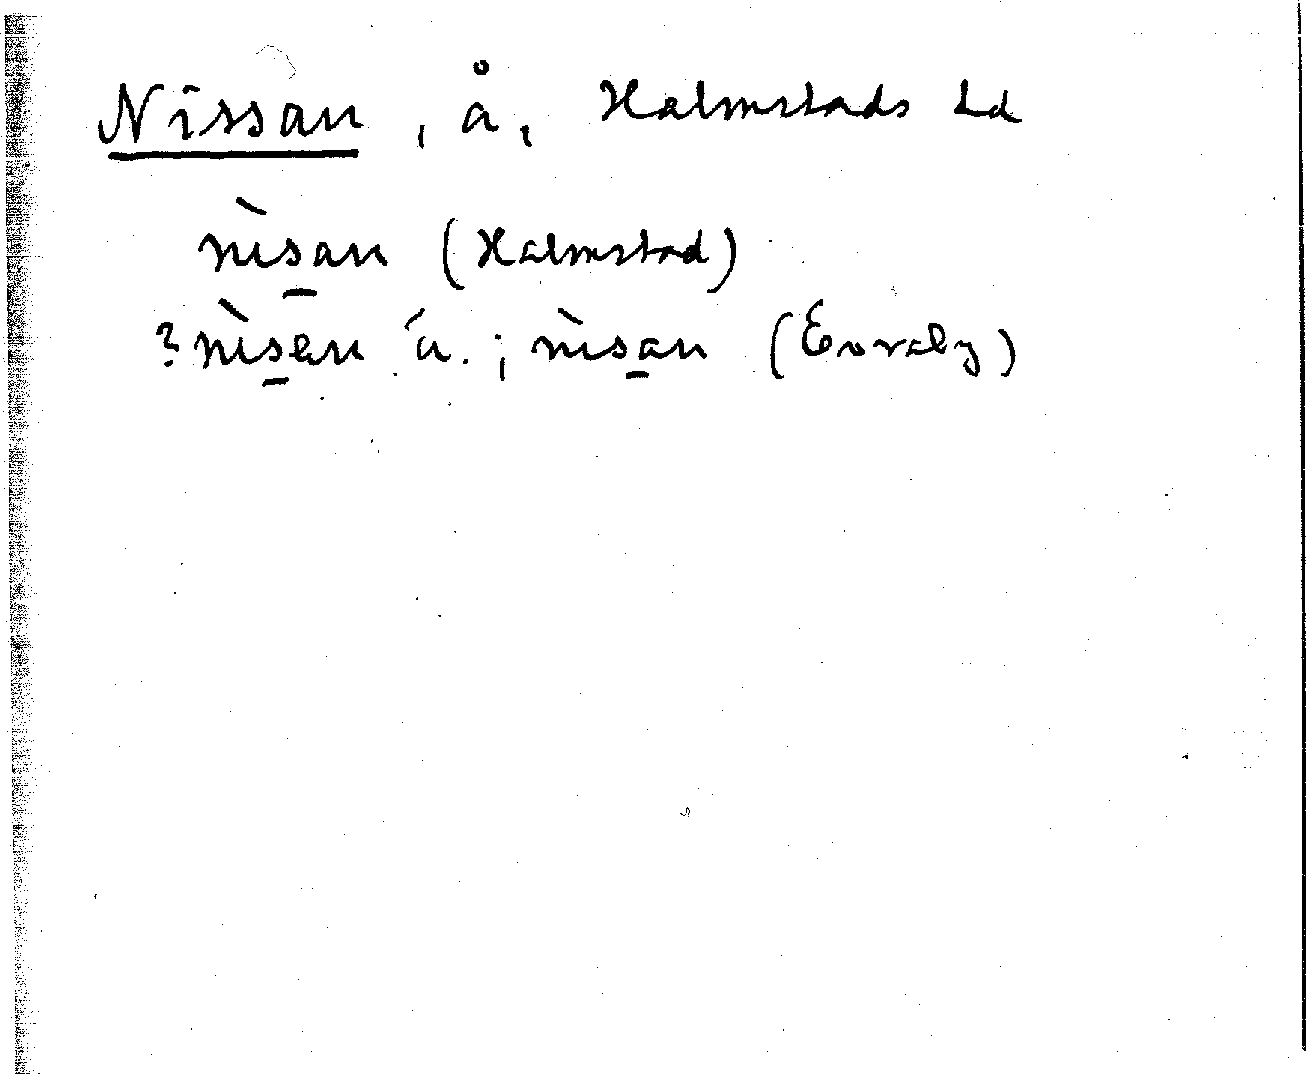 Nissan, å, Halmstads hd
nìs̱an (Halmstad)
?nìs̱en á.; nìsa̱n (Enraby)